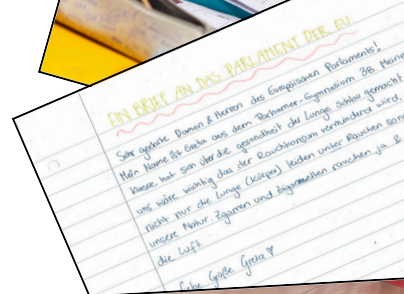 EIN BRIEF AN DAS PARLAMENT DER EU
Sehr geehrte Damen & Herren des Europäischen Parlaments!
Mein Name ist Greta aus dem Parhamer-Gymnasium 3B. Meine
Klasse hat sich über die gesundheit der Lunge schlau gemacht
uns wäre wichtig das der Rauchkonsum vermindert wird.
nicht nur die Lunge (Körper) leiden unter Rauchen son
unsere Natur. Zigarren und Zigaretten rauchen ja &
die Luft.
Liebe Grüße Greta